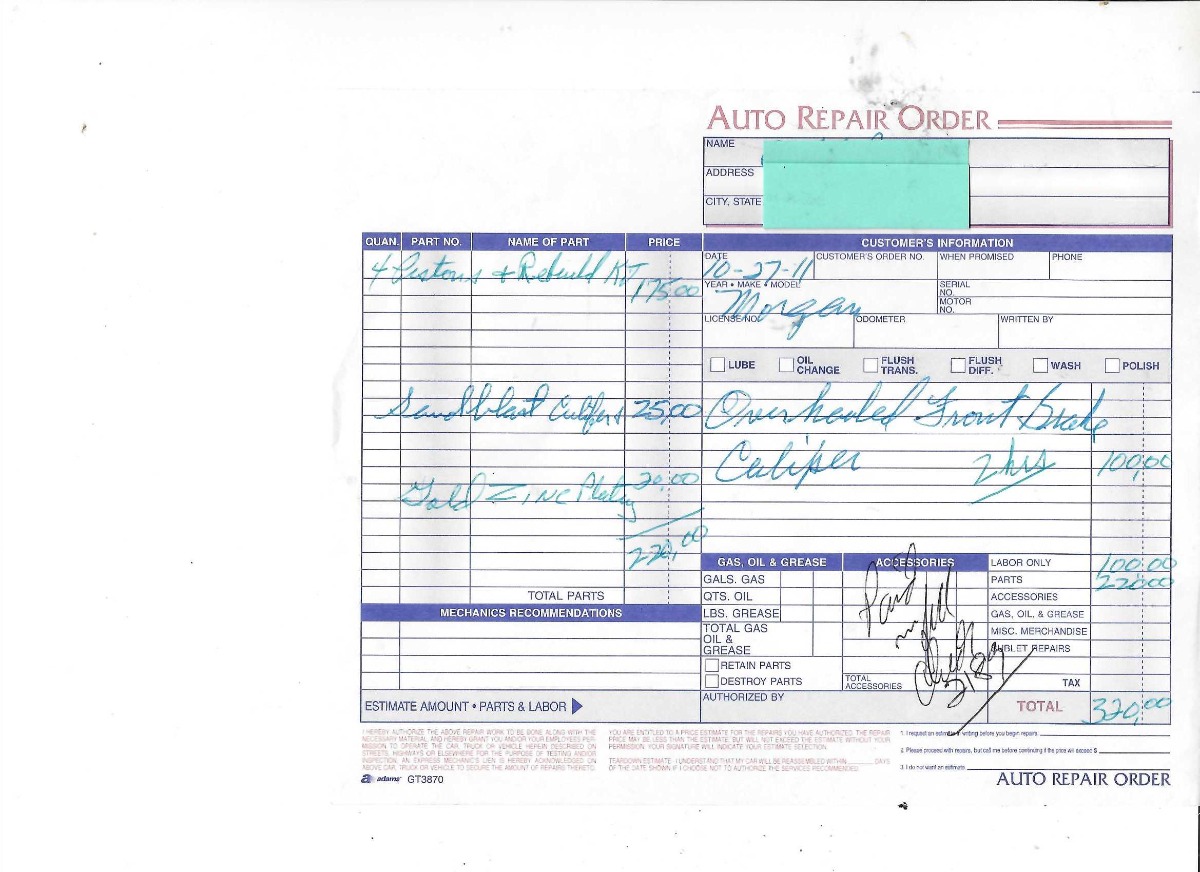 AUTO REPAIR ORDER
NAME
ADDRESS
CITY, STATE
QUAN. PART NO. NAME OF PART PRICE
CUSTOMER'S INFORMATION
DATE CUSTOMER'S ORDER NO. WHEN PROMISED PHONE
10-27-11
4 Pistons + Rebuild KT 175.00
YEAR • MAKE • MODEL SERIAL NO.
Morgan
MOTOR NO.
LICENSE NO. ODOMETER WRITTEN BY
LUBE OIL CHANGE FLUSH TRANS. FLUSH DIFF. WASH POLISH
Sandblast Calipers 25,00
Overhauled Front Brake
Caliper 2 hrs 100,00
Gold Zinc Plating 20.00
220,00
GAS, OIL & GREASE ACCESSORIES LABOR ONLY 100.00
GALS. GAS PARTS 220.00
TOTAL PARTS QTS. OIL ACCESSORIES
MECHANICS RECOMMENDATIONS LBS. GREASE GAS, OIL & GREASE
TOTAL GAS OIL & GREASE MISC. MERCHANDISE
SUBLET REPAIRS
Paid
in full
RETAIN PARTS
DESTROY PARTS TOTAL ACCESSORIES TAX
ESTIMATE AMOUNT • PARTS & LABOR AUTHORIZED BY TOTAL 320,00
I HEREBY AUTHORIZE THE ABOVE REPAIR WORK TO BE DONE ALONG WITH THE
NECESSARY MATERIAL, AND HEREBY GRANT YOU AND/OR YOUR EMPLOYEES PER-
MISSION TO OPERATE THE CAR, TRUCK OR VEHICLE HEREIN DESCRIBED ON
STREETS, HIGHWAYS OR ELSEWHERE FOR THE PURPOSE OF TESTING AND/OR
INSPECTION. AN EXPRESS MECHANIC'S LIEN IS HEREBY ACKNOWLEDGED ON
ABOVE CAR, TRUCK OR VEHICLE TO SECURE THE AMOUNT OF REPAIRS THERETO.
YOU ARE ENTITLED TO A PRICE ESTIMATE FOR THE REPAIRS YOU HAVE AUTHORIZED. THE REPAIR
PRICE MAY BE LESS THAN THE ESTIMATE, BUT WILL NOT EXCEED THE ESTIMATE WITHOUT YOUR
PERMISSION. YOUR SIGNATURE WILL INDICATE YOUR ESTIMATE SELECTION.
TEARDOWN ESTIMATE. I UNDERSTAND THAT MY CAR WILL BE REASSEMBLED WITHIN DAYS
OF THE DATE SHOWN IF I CHOOSE NOT TO AUTHORIZE THE SERVICES RECOMMENDED.
1. I request an estimate in writing before you begin repairs.
2. Please proceed with repairs, but call me before continuing if the price will exceed $
3. I do not want an estimate.
adams GT3870
AUTO REPAIR ORDER